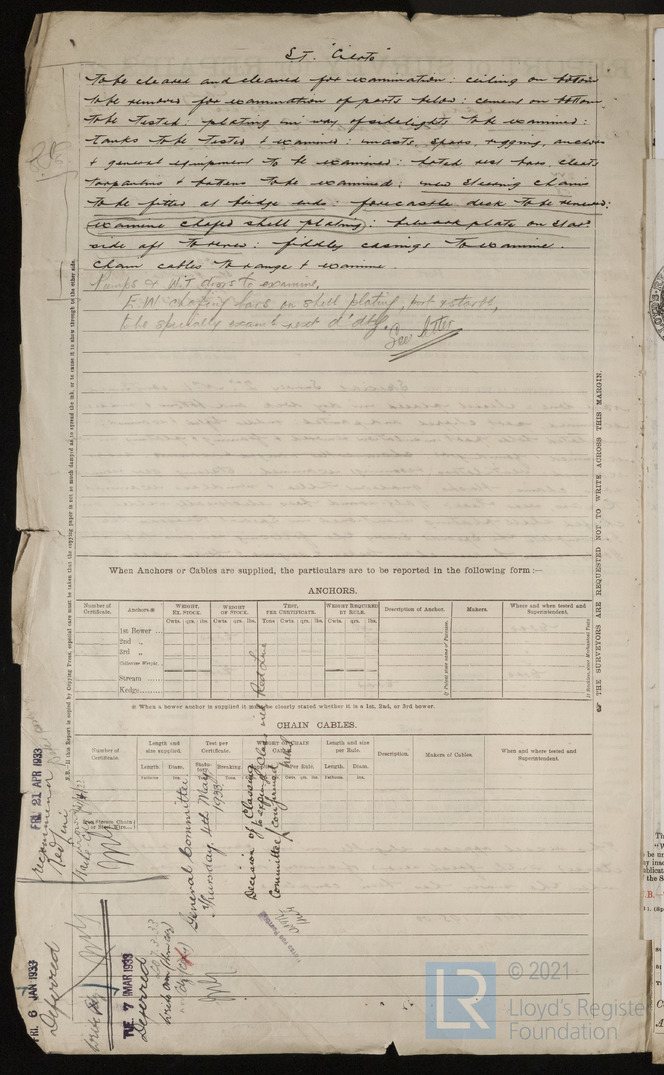 S.T. "Cierto"
to be cleared and cleaned for examination: ceiling on bottom
to be removed for examination of parts below: cement on bottom
to be tested: plating in way of sidelights to be examined:
tanks to be tested & examined: masts, spars, rigging, anchors
& general equipment to be examined: hatch rest bars, cleats
tarpaulins & battens to be examined: new steering chains
to be fitted at bridge ends: forecastle deck to be renewed:
examine chafed shell plating: bulwark plate on star
side aft to renew: fiddley casings to examine.
Chain cables to range & examine.
Pumps & W.T. doors to examine,
E.W. chafing bars on shell plating, port & starb'd,
to be specially exam'd next d'dk'g. See letter
When Anchors or Cables are supplied, the particulars are to be reported in the following form :—
ANCHORS.
Number of Certificate. Anchors.* WEIGHT. EX. STOCK. WEIGHT OF STOCK. TEST, PER CERTIFICATE. WEIGHT REQUIRED BY RULE. Description of Anchor. Makers. Where and when tested and Superintendent.
Cwts. qrs. lbs. Cwts. qrs. lbs. Tons Cwts. qrs. lbs. Cwts. qrs. lbs.
1st Bower
2nd "
3rd "
Collective Weight.
Stream
Kedge
* When a bower anchor is supplied it must be clearly stated whether it is a 1st, 2nd, or 3rd bower.
CHAIN CABLES.
Number of Certificate. Length and size supplied. Test per Certificate. WEIGHT OF CHAIN CABLE. Length and size per Rule. Description. Makers of Cables. When and where tested and Superintendent.
Length. Diam. Statutory. Breaking. Per Rule. Length. Diam.
Fathoms. Ins. Tons. Cwts. qrs. lbs. Fathoms. Ins.
Iron Stream Chain or Steel Wire
THE SURVEYORS ARE REQUESTED NOT TO WRITE ACROSS THIS MARGIN.
FRI. 21 APR 1933
recommend
Red Line
General Committee
Thursday 4th May
1933
Decision of Classing
Committee confirmed
to expunge Class with Red Line
FRI. 6 JAN 1933
Deferred
TUE. 7 MAR 1933
Deferred
© 2021
Lloyd's Register
Foundation